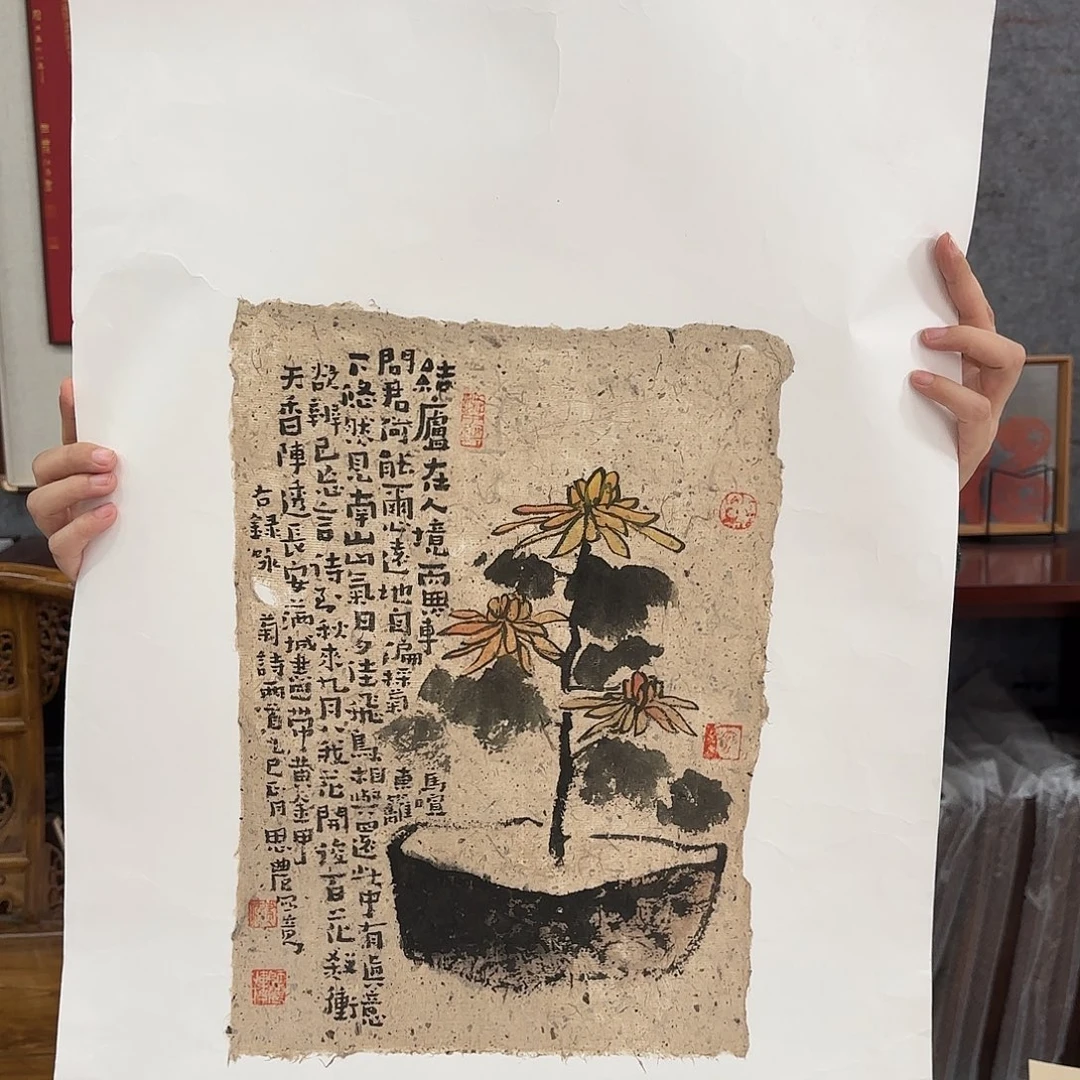 結廬在人境而無車馬喧
問君何能爾心遠地自偏採菊東籬
下悠然見南山山氣日夕佳飛鳥相與還此中有眞意
欲辨已忘言待到秋來九月八我花開後百花殺衝
天香陣透長安滿城盡帶黄金甲
右錄咏菊詩兩首乙巳月思農寫意